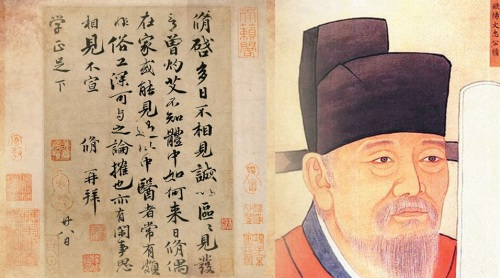 脩啓多日不相見誠以區區見發
言曾灼艾不知體中如何來日脩偶
在家或能見過此中醫者常有頗
非俗工深可與之論搉也亦有閑事思
相見不宣 脩再拜
廿八日
學正足下
歐陽文忠公脩